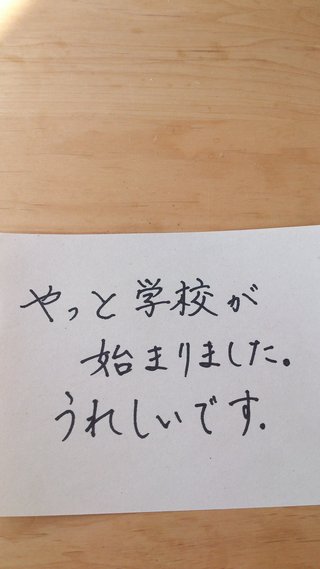 やっと学校が
始まりました。
うれしいです.